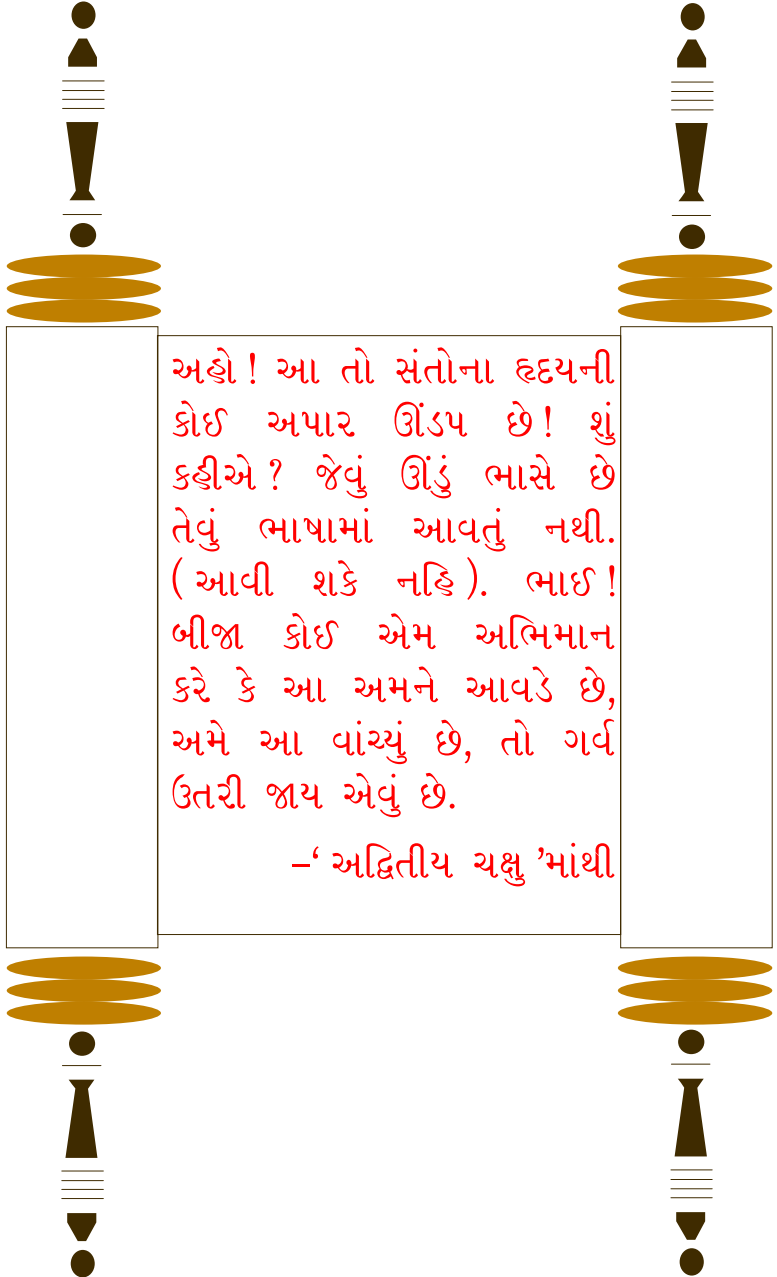 અહો ! આ તો સંતોના હૃદયની
કોઈ અપાર ઊંડપ છે ! શું
કહીએ ? જેવું ઊંડું ભાસે છે
તેવું ભાષામાં આવતું નથી.
( આવી શકે નહિ ). ભાઈ !
બીજા કોઈ એમ અભિમાન
કરે કે આ અમને આવડે છે,
અમે આ વાંચ્યું છે, તો ગર્વ
ઉતરી જાય એવું છે.
–‘ અદ્વિતીય ચક્ષુ ’માંથી